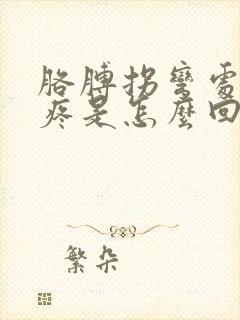 胳膊拐彎處
疼是怎麼回
繁朵